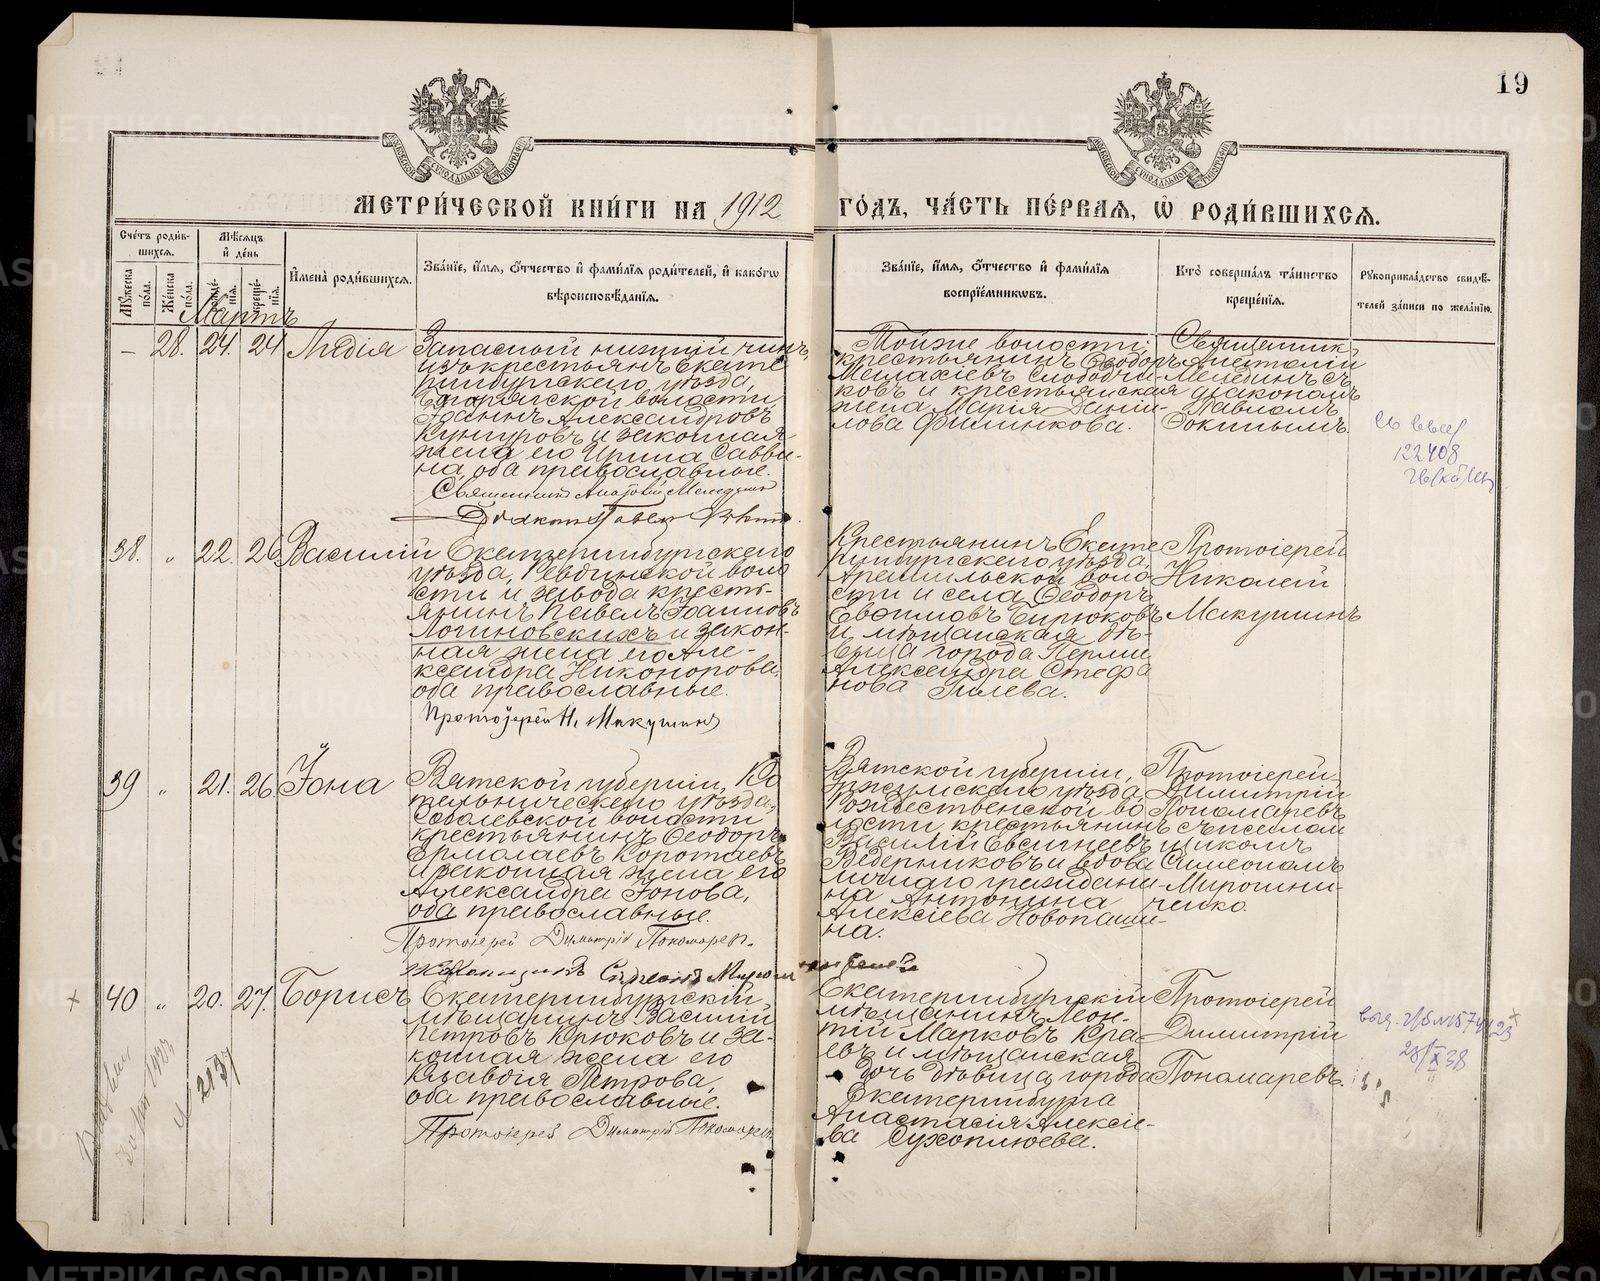 19
МЕТРИ́ЧЕСКОЙ КНИ́ГИ НА 1912
ГО́ДЪ, ЧА́СТЬ ПЕ́РВАЯ, Ѡ҆ РОДИ́ВШИХСЯ.
Сче́тъ роди́в-
шихся.
Мѣ́сяцъ
и҆ де́нь
Му́жеска по́ла.
Же́нска по́ла.
креще́-
нія.
И҆мена̀ роди́вшихся.
Зва́нїе, и҆́мя, ѻ҆́тчество и҆ фами́лїя роди́телей, и҆ како́гѡ
вѣроисповѣ́данїя.
Зва́нїе, и҆́мя, ѻ҆́тчество и҆ фами́лїя
воспрїе́мникѡвъ.
Кто̀ соверша́лъ та́инство
креще́нїя.
Рꙋкоприкла́дство свидѣ́-
телей за́писи по жела́нїю.
Мартъ
— 28. 24. 24 Лидія
Запасный нижній чинъ,
изъ крестьянъ Екате
ринбургскаго уѣзда,
волости
Іоаннъ Александровъ
Кунгуровъ и законная
жена его Ирина Савви-
на, оба православные.
Священникъ
Діаконъ Павелъ
Тойже волости
крестьянинъ Ѳеодоръ
Малахіевъ Слободчи-
ковъ и крестьянская
жена Марія Дании-
лова Филинкова.
Священникъ
Анатолій
съ
діакономъ
Павломъ
122408
38. „ 22. 26 Василій
Екатеринбургскаго
уѣзда, Ревдинской воло
сти и завода кресть-
янинъ Павелъ Іоанновъ
Логиновскихъ и закон-
ная жена его Але-
ксандра Никонорова,
оба православные.
Протоіерей Н. Макушинъ
Крестьянинъ Екате
ринбургскаго уѣзда,
Арамильской воло
сти и села Ѳеодоръ
Евѳимовъ Бирюковъ
и мѣщанская дѣ-
вица города Перми
Александра Стефа
нова Гилева.
Протоіерей
Николай
Макушинъ
39 „ 21. 26. Іона
Вятской губерніи, Ко
тельническаго уѣзда,
Соболевской волости
крестьянинъ Ѳеодоръ
Ермолаевъ Коротаевъ
и законная жена его
Александра Іонова,
оба православные.
Протоіерей Димитрій Пономарев.
Вятской губерніи,
Уржумскаго уѣзда,
Рождественской во
лости крестьянинъ
Василій Евсигнеевъ
Ведерниковъ и вдова
личнаго граждани-
на Антонина
Алексіева Новопаши-
на.
Протоіерей
Димитрій
Пономаревъ
съ псалом
щикомъ
Симеономъ
Мирошни-
ченко
40 „ 20. 27. Борисъ
Екатеринбургскій
мѣщанинъ Василій
Петровъ Крюковъ и за-
конная жена его
Клавдія Петрова,
оба православные.
Протоіерей Димитрій Пономарев.
Екатеринбургскій
мѣщанинъ Леон-
тій Марковъ Кра-
евъ и мѣщанская
дочь дѣвица города
Екатеринбурга
Анастасія Алексіе-
ва Сухоплюева.
Протоіерей
Димитрій
Пономаревъ.